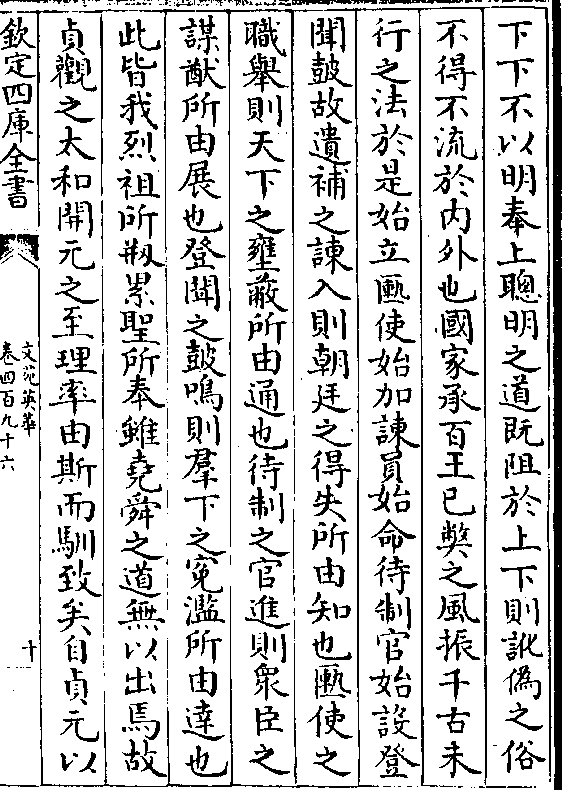 下下不以明奉上聰明之道既阻於上下則訛偽之俗
不得不流於内外也國家承百王已獘之風振千古未
行之法於是始立匭使始加諫員始命待制官始設登
聞鼓故遺補之諫入則朝廷之得失所由知也匭使之
職舉則天下之壅蔽所由通也待制之官進則衆臣之
謀猷所由展也登聞之鼓鳴則羣下之寃濫所由達也
此皆我烈祖所剏累聖所奉雖堯舜之道無以出焉故
貞觀之太和開元之至理率由斯而馴致矣自貞元以
欽定四庫全書
文苑英華
卷四百九十六
十